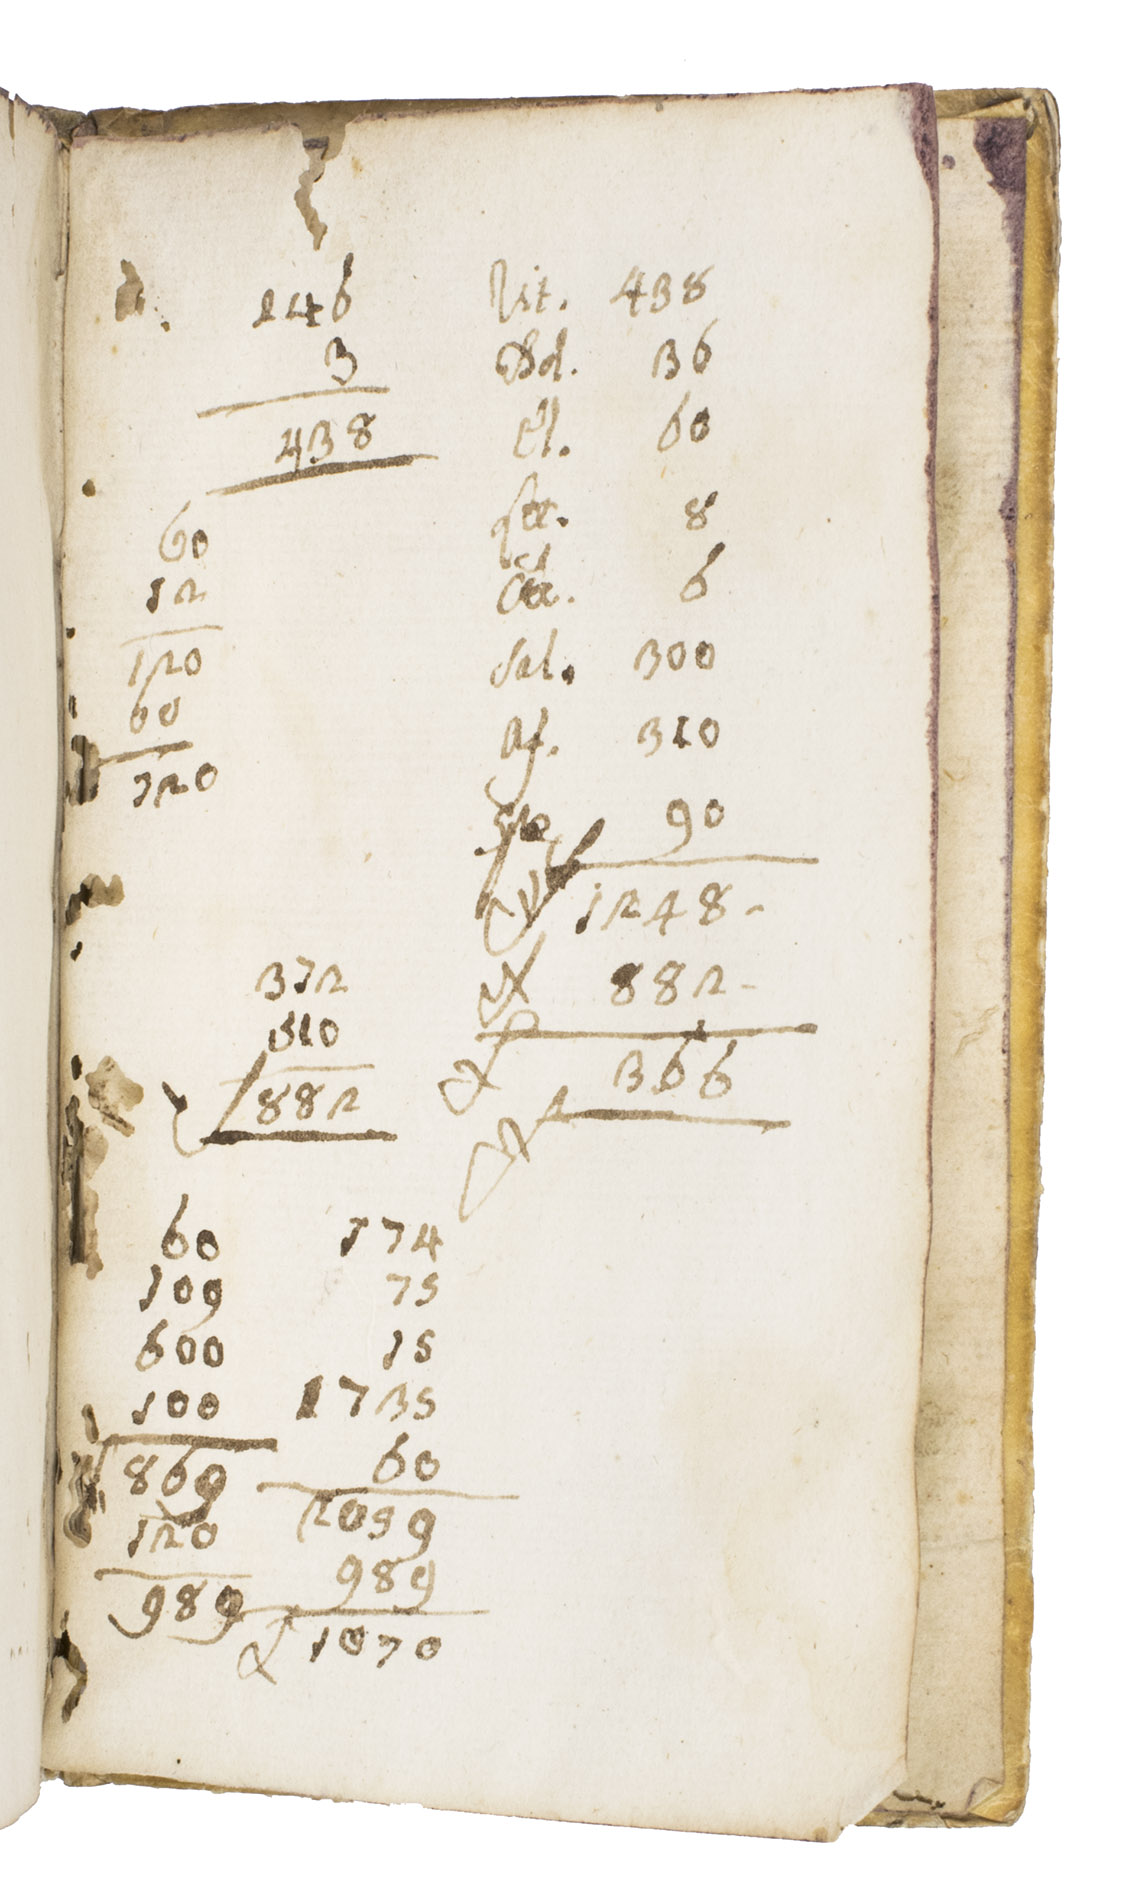 146
3
438
60
12
120
00
120
Vit. 438
36
El. 60
8
6
Sal. 300
Af. 310
90
1248-
882-
366
372
510
882
60
109
600
100
869
120
989
174
75
15
1735
60
2059
989
1070